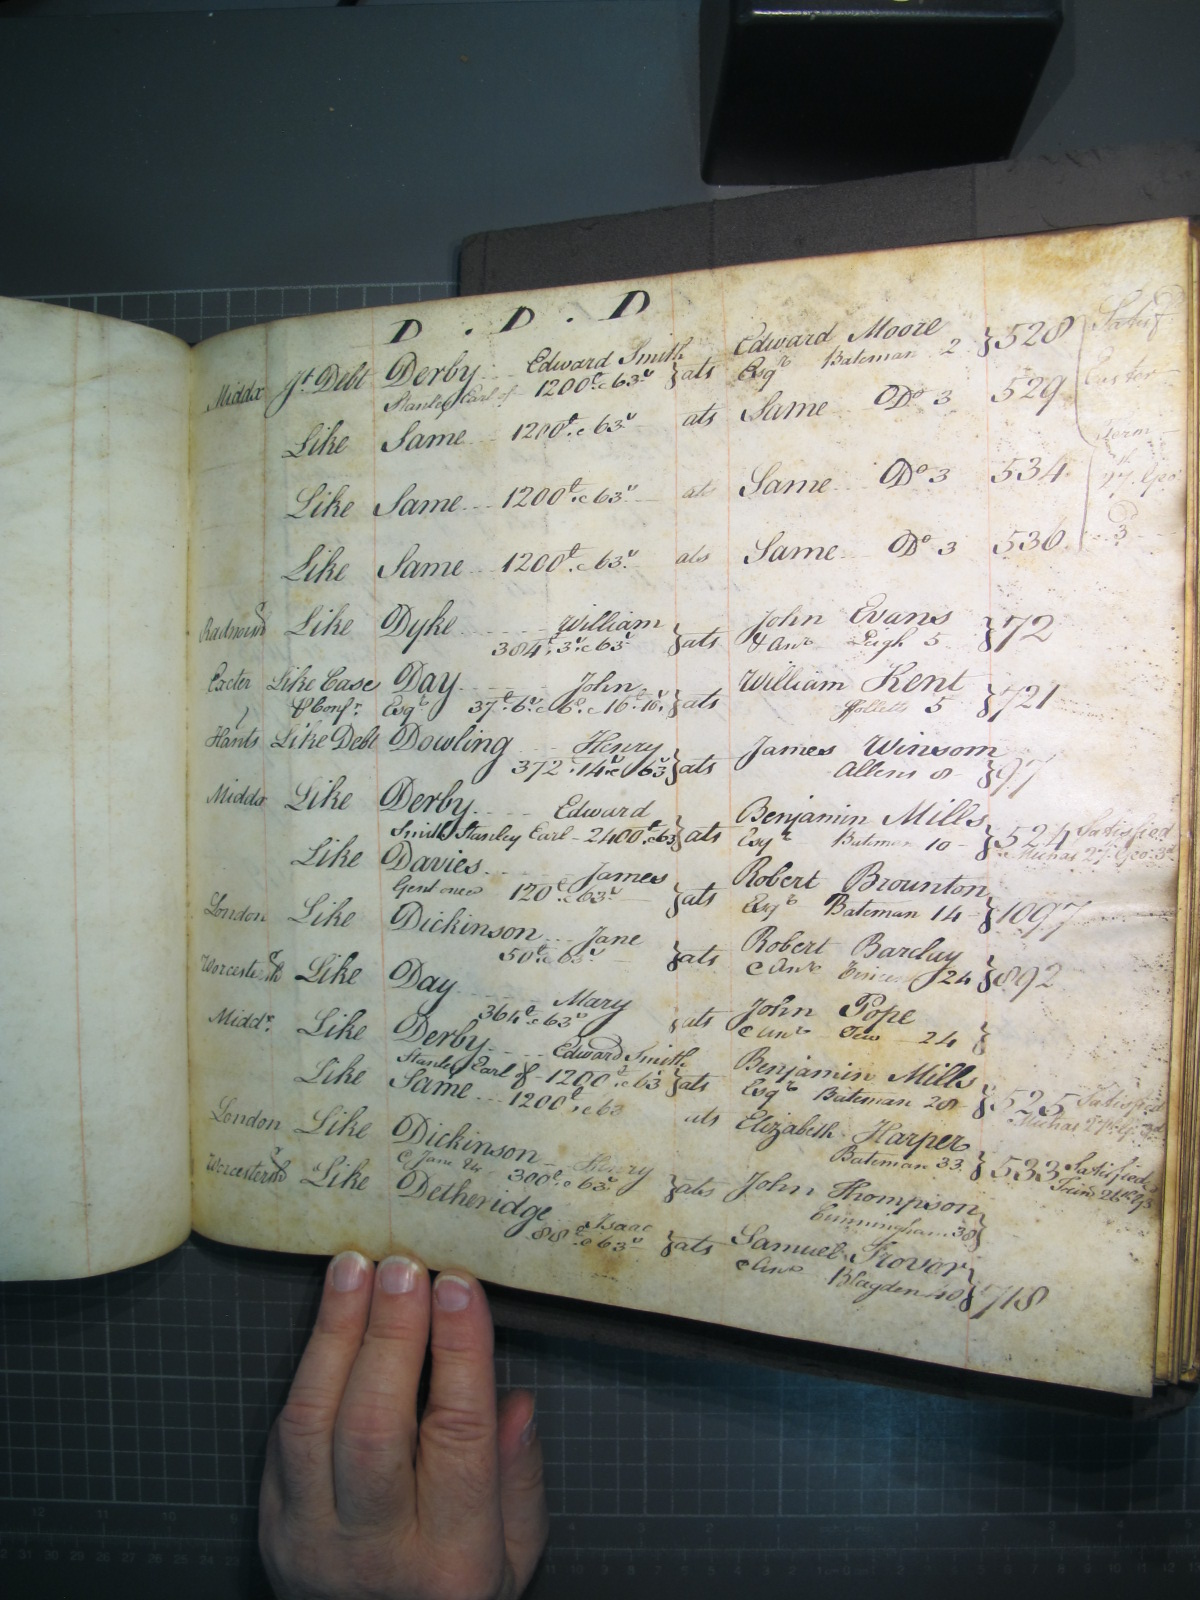 D . D . D
Middx Jt Debt Derby Edward Smith } ats Edward Moore } 528 Satisfd
Stanley Earl of 1200£ & 63s Esqr Bateman 2
Like Same 1200£ & 63s ats Same Do 3 529 Easter
Term
Like Same 1200£ & 63s ats Same Do 3 534 27th Geo
Like Same 1200£ & 63s ats Same Do 3 536 3d
Radnorsh Like Dyke William } ats John Evans } 72
384£ 3s & 63s & anr Leigh 5
Exeter Like Case Day John } ats William Kent } 721
& Confn Esqr 37£ 6s Folletts 5
Hants Like Debt Dowling Henry } ats James Winsom } 97
372 14s & 63s Allens 8
Middx Like Derby Edward } ats Benjamin Mills } 524 Satisfied
Smith Stanley Earl 2400£ & 63s Esqr Bateman 10 Michas 27 Geo 3d
Like Davies James } ats Robert Brounton } 1097
Gent one &c 120£ & 63s Esqr Bateman 14
London Like Dickinson Jane } ats Robert Barclay } 892
50£ & 63s & anr 24
Worcestersh Like Day Mary } ats John Pope }
364£ & 63s & anr 24
Middx Like Derby Edward Smith } ats Benjamin Mills } 525 Satisfied
Stanley Earl of 1200£ & 63 Esqr Bateman 28 Michas 27 Geo 3d
Like Same 1200£ & 63 ats Elizabeth Harper } 533 Satisfied
Bateman 33 Trin 26 Geo 3
London Like Dickinson Henry } ats John Thompson }
300£ & 63s Cunningham 38
Worcestersh Like Detheridge Isaac } ats Samuel Trovor } 718
88£ & 63s & anr Blagden 40